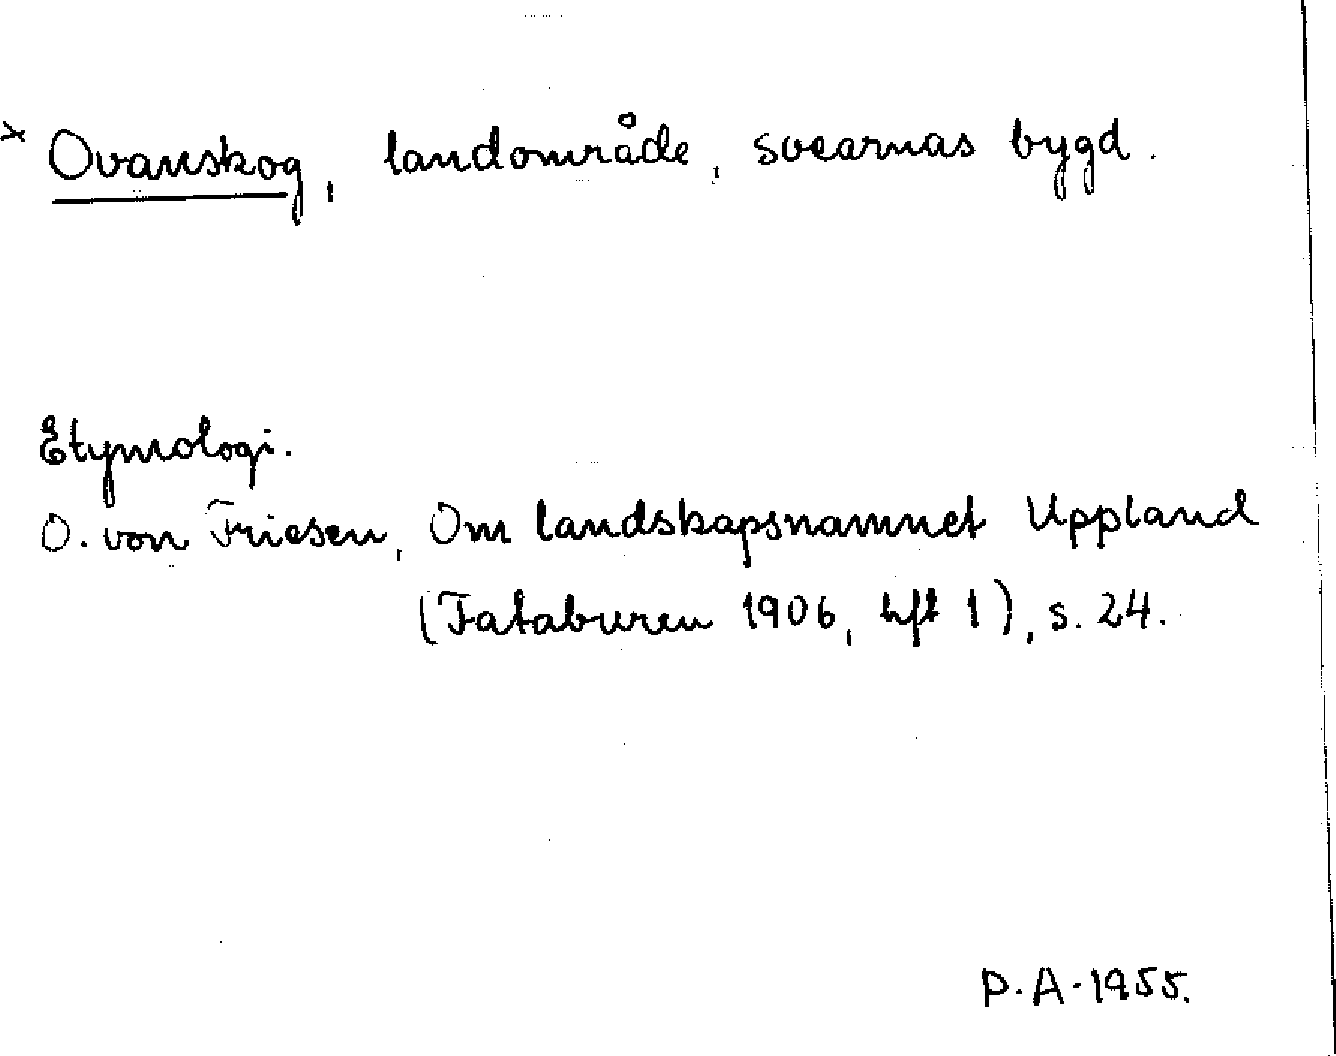 x Ovanskog, landområde, svearnas bygd.
Etymologi.
O. von Friesen, Om landskapsnamnet Uppland
(Fataburen 1906, hft 1), s. 24.
P.A. 1955.